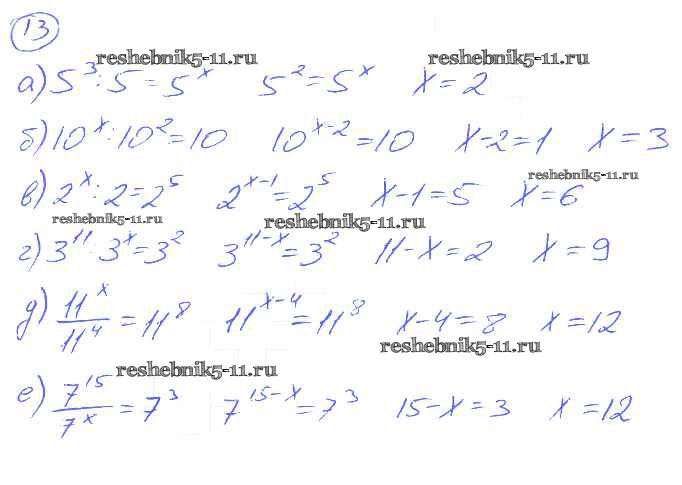 13
reshebnik5-11.ru reshebnik5-11.ru
а) 5³ : 5 = 5ˣ 5² = 5ˣ x = 2
б) 10ˣ : 10² = 10 10ˣ⁻² = 10 x - 2 = 1 x = 3
reshebnik5-11.ru
в) 2ˣ : 2 = 2⁵ 2ˣ⁻¹ = 2⁵ x - 1 = 5 x = 6
reshebnik5-11.ru reshebnik5-11.ru
г) 3¹¹ : 3ˣ = 3² 3¹¹⁻ˣ = 3² 11 - x = 2 x = 9
д) 11ˣ/11⁴ = 11⁸ 11ˣ⁻⁴ = 11⁸ x - 4 = 8 x = 12
reshebnik5-11.ru
reshebnik5-11.ru
е) 7¹⁵/7ˣ = 7³ 7¹⁵⁻ˣ = 7³ 15 - x = 3 x = 12